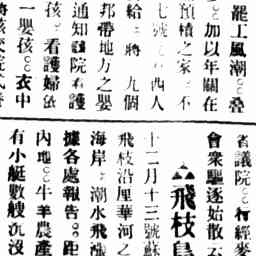 罷工風潮○○叠
○○加以年關在
預積之家○不
七號○○西人
給○將九個
邦帶地方之嬰
通知醫院看護
孩○看護婦依
一嬰孩○○衣中
省議院○○柯經麥
會衆驅逐始散○
▲飛枝島
十二月十三號蘇
飛枝沿厘華河之
海岸○潮水飛漲
據各處報告○距
內地○牛羊農產
有小艇數艘沉沒